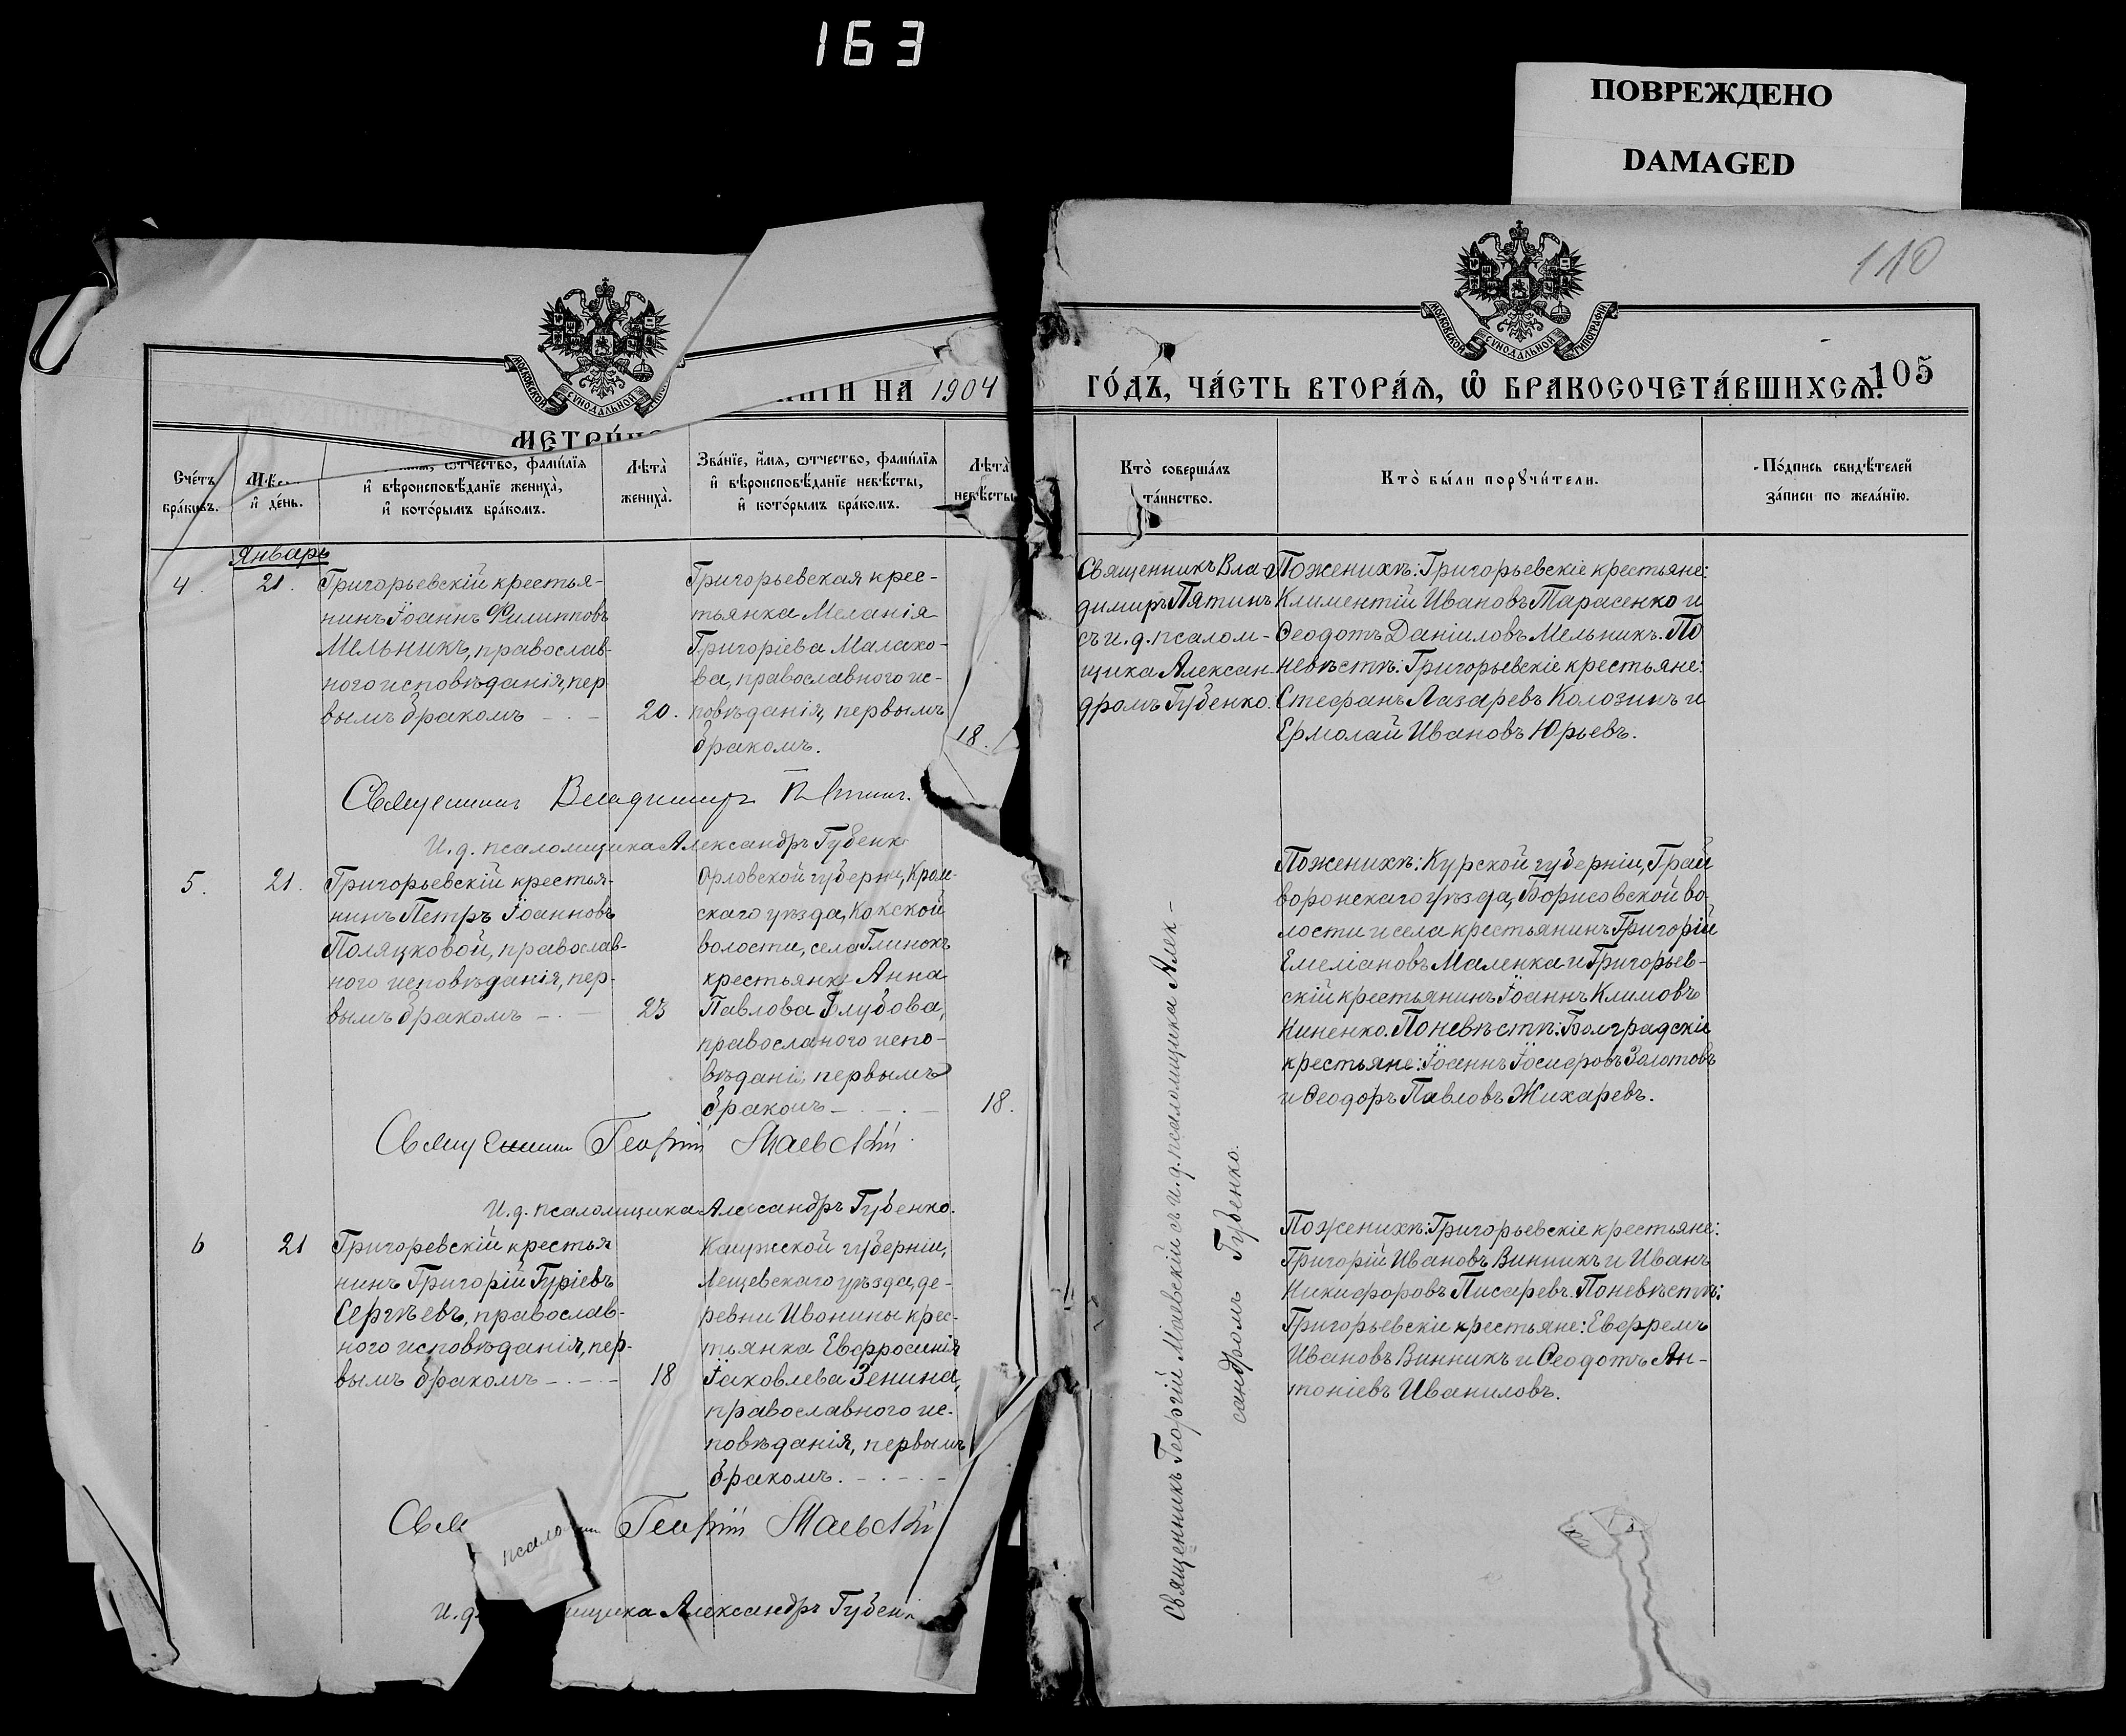 163
ПОВРЕЖДЕНО
DAMAGED
110
МОСКОВСКОЙ СУНОДАЛЬНОЙ
МОСКОВСКОЙ СУНОДАЛЬНОЙ ТИПОГРАФІИ
НА 1904
ГО́ДЪ, ЧА́СТЬ ВТОРА́Ѧ, Ѽ БРАКОСОЧЕТА́ВШИХСѦ.
105
Сче́тъ бра́ковъ.
и҆ де́нь.
ѻтчество, фами́лїѧ
и҆ вѣроисповѣ́данїе жениха̀,
и҆ кото́рымъ бра́комъ.
Лѣта̀ жениха̀.
Зва́нїе, и҆́мѧ, ѻтчество, фами́лїѧ
и҆ вѣроисповѣ́данїе невѣ́сты,
и҆ кото́рымъ бра́комъ.
Лѣта̀ невѣ́сты
Кто̀ соверша́лъ
та́инство.
Кто̀ бы́ли порꙋчи́тели.
По́дпись свидѣ́телей
за́писи по жела́нїю.
Январь
4. 21.
Григорьевскій крестья-
нинъ Іоаннъ Филипповъ
Мельникъ, православ-
ного исповѣданія, пер
вымъ бракомъ — . — 20.
Григорьевская крес-
тьянка Меланія
Григоріева Малахо-
ва, православного ис-
повѣданія, первымъ
бракомъ. 18.
Священникъ Вла-
димиръ Пятинъ
съ и. д. псалом-
щика Алексан-
дромъ Губенко.
По женихѣ: Григорьевскіе крестьяне:
Климентій Ивановъ Тарасенко и
Ѳеодотъ Даніиловъ Мельникъ. По
невѣстѣ: Григорьевскіе крестьяне:
Стефанъ Лазаревъ Колозинъ и
Ермолай Ивановъ Юрьевъ.
Священникъ Владимиръ Пятинъ.
И. д. псаломщика Александръ Губенк
5. 21.
Григорьевскій крестья-
нинъ Петръ Іоанновъ
Поляцковой, православ-
ного исповѣданія, пер-
вымъ бракомъ — . — 23
Орловской губерніи, Кром-
скаго уѣзда, Кокской
волости, села Глинокъ
крестьянка Анна
Павлова Голубова,
православного испо-
вѣданія, первымъ
бракомъ — . — . — 18.
По женихѣ: Курской губерніи, Грай
воронскаго уѣзда, Борисовской во-
лости и села крестьянинъ Григорій
Емеліановъ Маленка и Григорьев-
скій крестьянинъ Іоаннъ Климовъ
Киненко. По невѣстѣ: Болградскіе
крестьяне: Іоаннъ Іосифовъ Золотовъ
и Ѳеодоръ Павловъ Жихаревъ.
Священникъ Георгій Маевскій.
И. д. псаломщика Александръ Губенко.
6 21
Григоревскій крестья
нинъ Григорій Гуріевъ
Сергѣевъ, православ-
ного исповѣданія, пер-
вымъ бракомъ — . — . — 18
Калужской губерніи,
Лещевскаго уѣзда, де-
ревни Ивонины крес-
тьянка Евфросинія
Іаковлева Зенина,
православного ис-
повѣданія, первымъ
бракомъ. — . — . —
По женихѣ: Григорьевскіе крестьяне:
Григорій Ивановъ Винникъ и Иванъ
Никифоровъ Писаревъ. По невѣстѣ:
Григорьевскіе крестьяне: Евфремъ
Ивановъ Винникъ и Ѳеодотъ Ан-
тоніевъ Иваниловъ.
Священникъ Георгій Маевскій съ и. д. псаломщика Алек-
сандромъ Губенко.
Георгій Маевскій
псало
И. д. мщика Александръ Губен